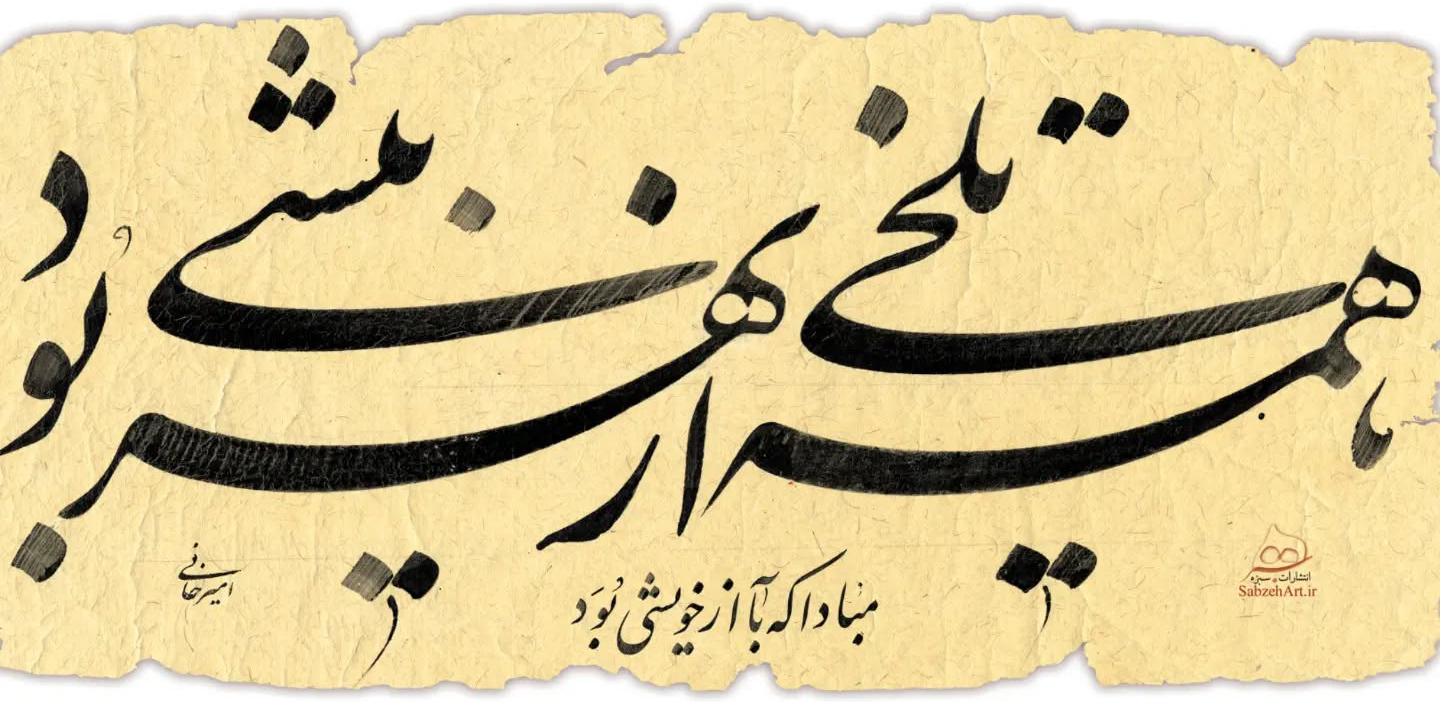 همه تلخی از بهر بیشی بُود
مبادا که با آز خویشی بُوَد
امیرخانی
انتشارات سبزه
SabzehArt.ir